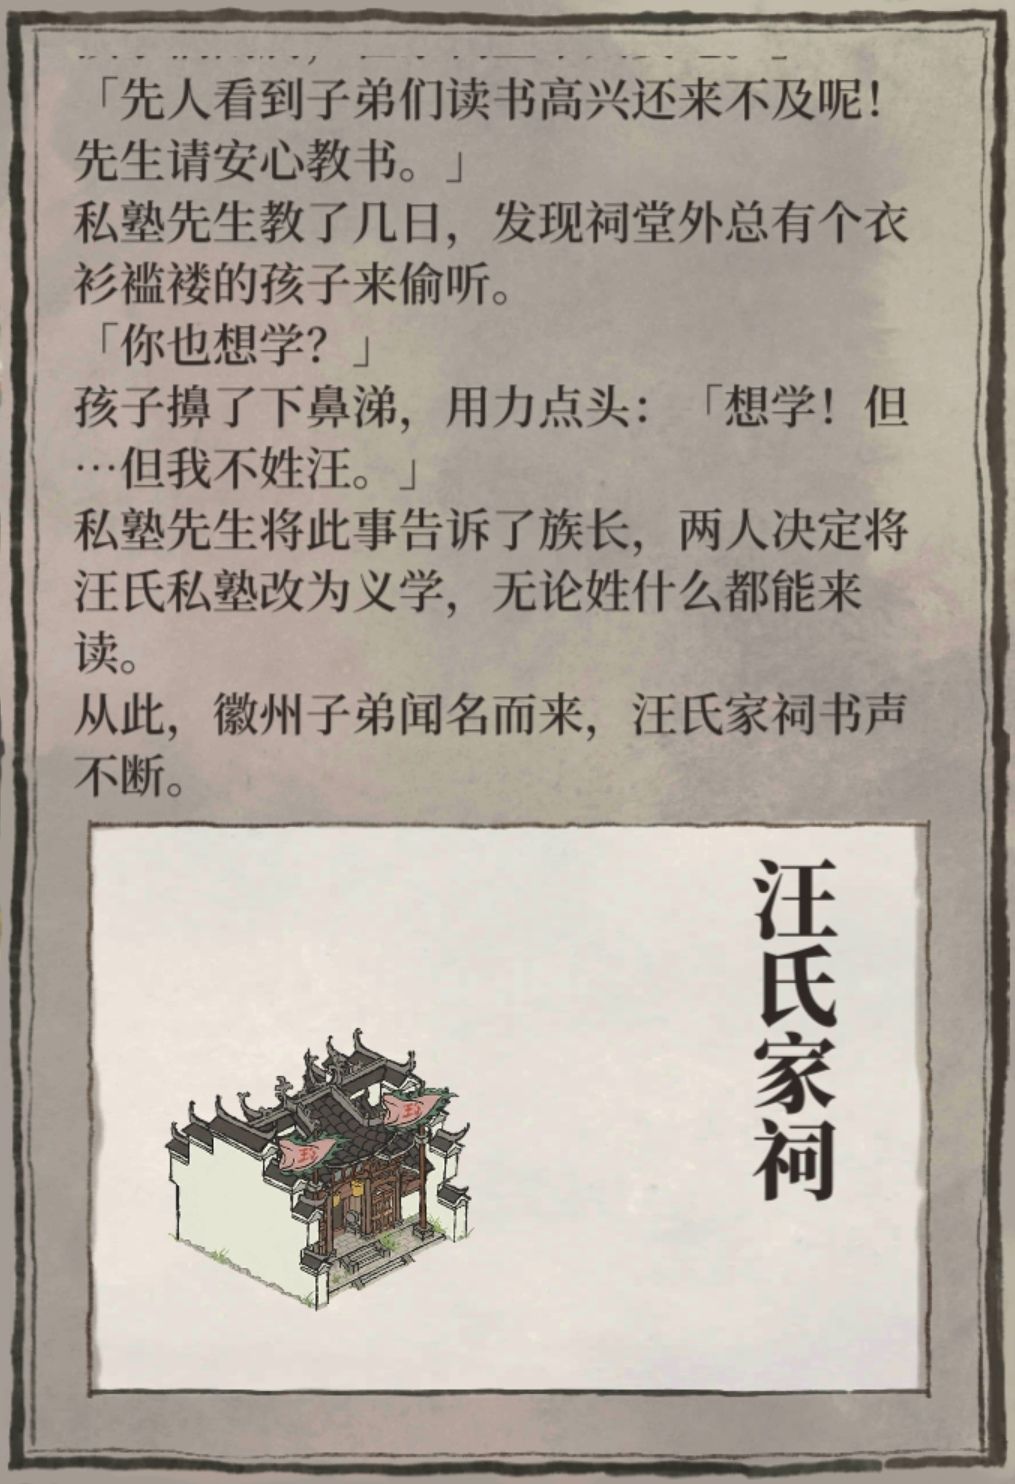 「先人看到子弟们读书高兴还来不及呢！
先生请安心教书。」
私塾先生教了几日，发现祠堂外总有个衣
衫褴褛的孩子来偷听。
「你也想学？」
孩子擤了下鼻涕，用力点头：「想学！但
…但我不姓汪。」
私塾先生将此事告诉了族长，两人决定将
汪氏私塾改为义学，无论姓什么都能来
读。
从此，徽州子弟闻名而来，汪氏家祠书声
不断。
汪氏家祠